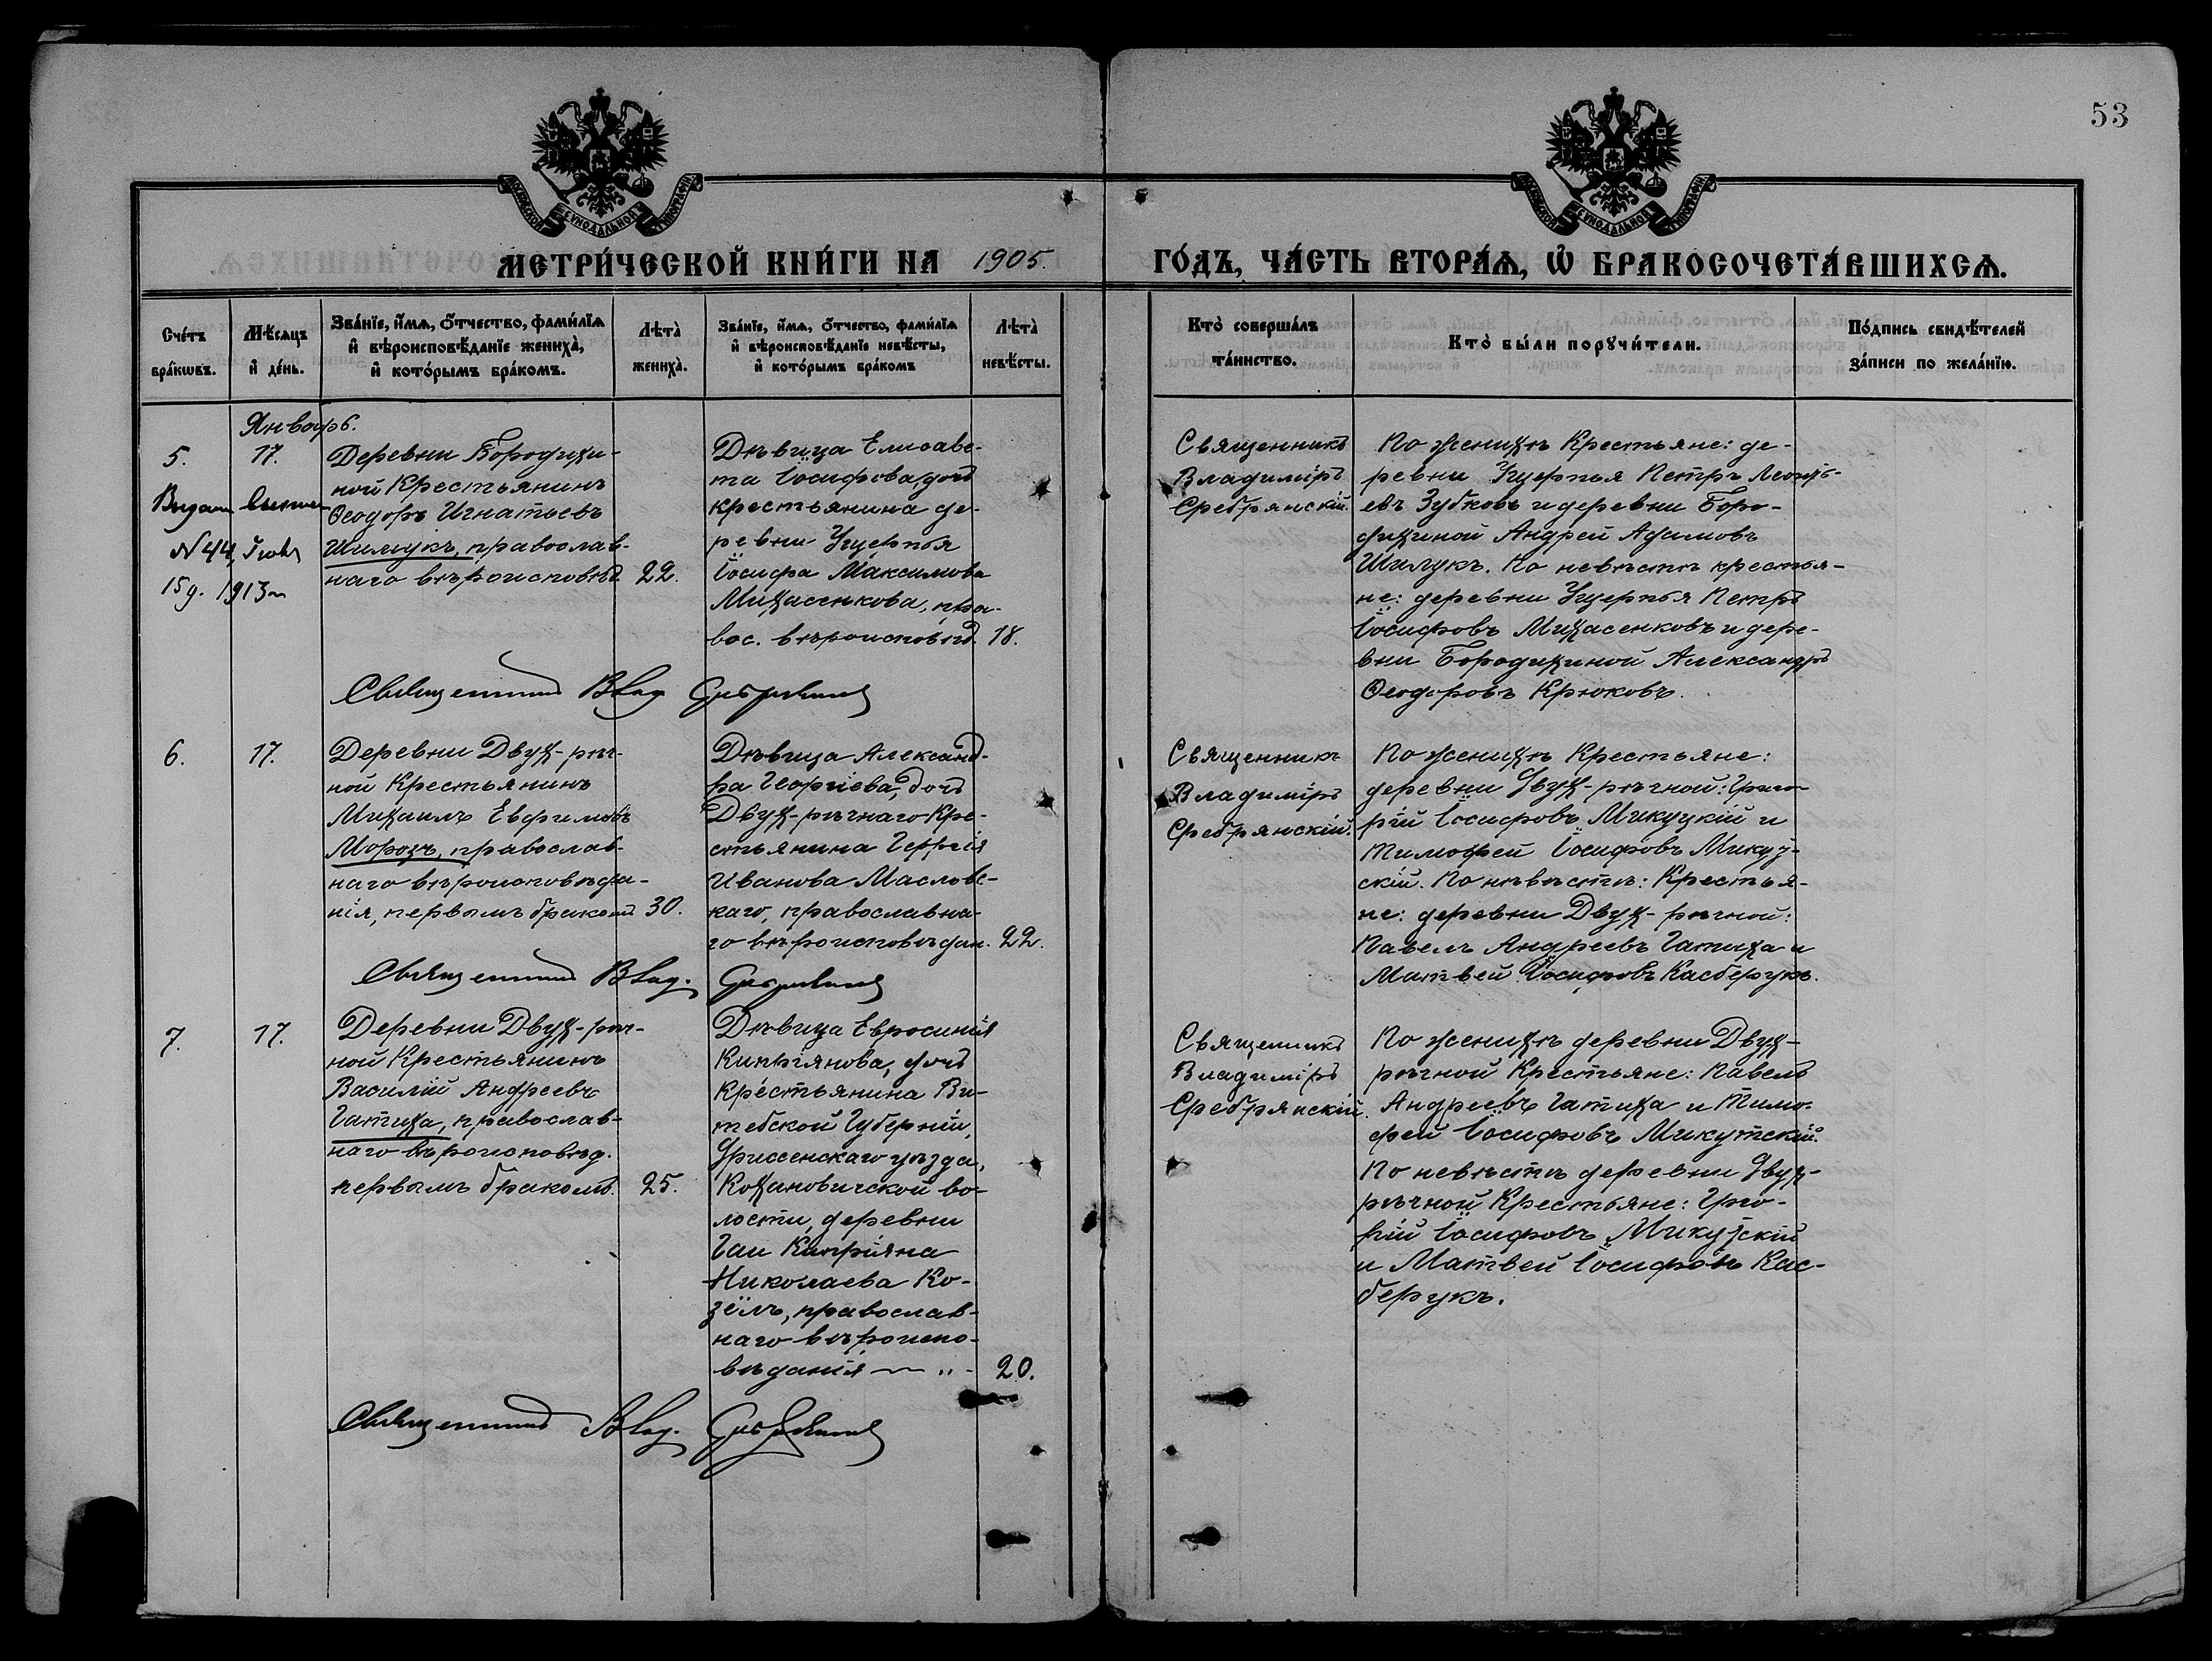 53
МОСКОВСКОЙ СѴНОДАЛЬНОЙ ТИПОГРАФІИ
МОСКОВСКОЙ СѴНОДАЛЬНОЙ ТИПОГРАФІИ
МЕТРИ́ЧЕСКОЙ КНИ́ГИ НА 1905. ГО́ДЪ, ЧА́СТЬ ВТОРА́Ѧ, Ѿ БРАКОСОЧЕТА́ВШИХСѦ.
Сче́тъ
бра́кѡвъ.
Мѣ́сяцъ
и҆ де́нь.
Зва́нїе, и҆́мѧ, ѻ҆́тчество, фами́лїѧ
и҆ вѣроисповѣ́данїе жениха̀,
и҆ кото́рымъ бра́комъ.
Лѣта̀
жениха̀.
Зва́нїе, и҆́мѧ, ѻ҆́тчество, фами́лїѧ
и҆ вѣроисповѣ́данїе невѣ́сты,
и҆ кото́рымъ бра́комъ
Лѣта̀
невѣ́сты.
Кто̀ соверша́лъ
та́инство.
Кто̀ бы́ли порꙋчи́тели.
По́дпись свидѣ́телей
за́писи по жела́нїю.
Январь.
5.
17.
Выдана
№ 44, Іюля
15 д. 1913 г.
Деревни Бородихи-
ной Крестьянинъ
Ѳеодоръ Игнатьевъ
Шилукъ, православ-
наго вѣроисповѣд. 22.
Дѣвица Елисаве-
та Іосифова, дочь
крестьянина де-
ревни Ущерпья
Іосифа Максимова
Михасенкова, пра-
вос. вѣроисповѣд. 18.
Священникъ
Владиміръ
Сребрянскій.
По женихѣ Крестьяне: де-
ревни Ущерпья Петръ Леонть-
евъ Зубковъ и деревни Боро-
дихиной Андрей Адамовъ
Шилукъ. По невѣстѣ крестья-
не: деревни Ущерпья Петръ
Іосифовъ Михасенковъ и дере-
вни Бородихиной Александръ
Ѳеодоровъ Крюковъ.
Священникъ Влад. Сребрянскій
6.
17.
Деревни Двух-рѣч-
ной Крестьянинъ
Михаилъ Евфимовъ
Морозъ, православ-
наго вѣроисповѣда-
нія, первымъ бракомъ 30.
Дѣвица Александ-
ра Георгіева, дочь
Двух-рѣчнаго Кре-
стьянина Георгія
Иванова Масловс-
каго, православна-
го вѣроисповѣдан. 22.
Священникъ
Владиміръ
Сребрянскій.
По женихѣ Крестьяне:
деревни Двух-рѣчной: Григо-
рій Іосифовъ Микуцкій и
Тимофей Іосифовъ Микуз-
скій. По невѣстѣ: Крестья-
не: деревни Двух-рѣчной:
Павелъ Андреевъ Гатиха и
Матвей Іосифовъ Касберукъ.
Священникъ Влад. Сребрянскій
7.
17.
Деревни Двух-рѣч-
ной Крестьянинъ
Василій Андреевъ
Гатиха, православ-
наго вѣроисповѣд.
первымъ бракомъ. 25.
Дѣвица Евросинія
Кипріянова, дочь
Крестьянина Ви-
тебской Губерніи,
Дриссенскаго уѣзда,
Кохановичской во-
лости, деревни
Гаи Кипріяна
Николаева Ко-
зёлъ, православ-
наго вѣроиспо-
вѣданія — " - 20.
Священникъ
Владиміръ
Сребрянскій.
По женихѣ деревни Двух-
рѣчной Крестьяне: Павелъ
Андреевъ Гатиха и Тимо-
фей Іосифовъ Микутскій.
По невѣстѣ деревни Двух-
рѣчной Крестьяне: Григо-
рій Іосифовъ Микузскій
и Матвей Іосифовъ Кас-
берукъ.
Священникъ Влад. Сребрянскій